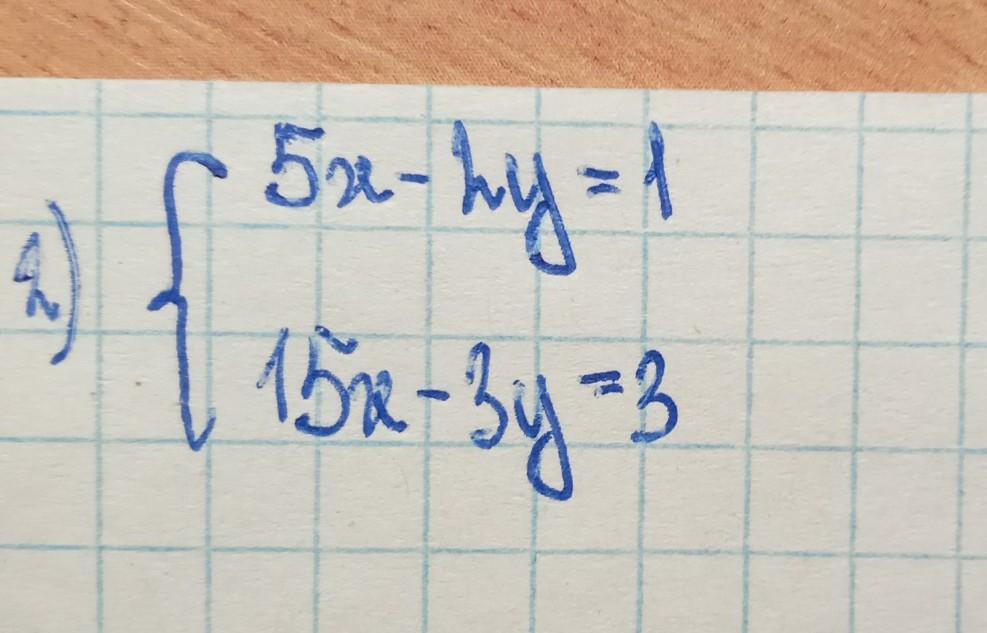 2)
5x - 2y = 1
15x - 3y = 3